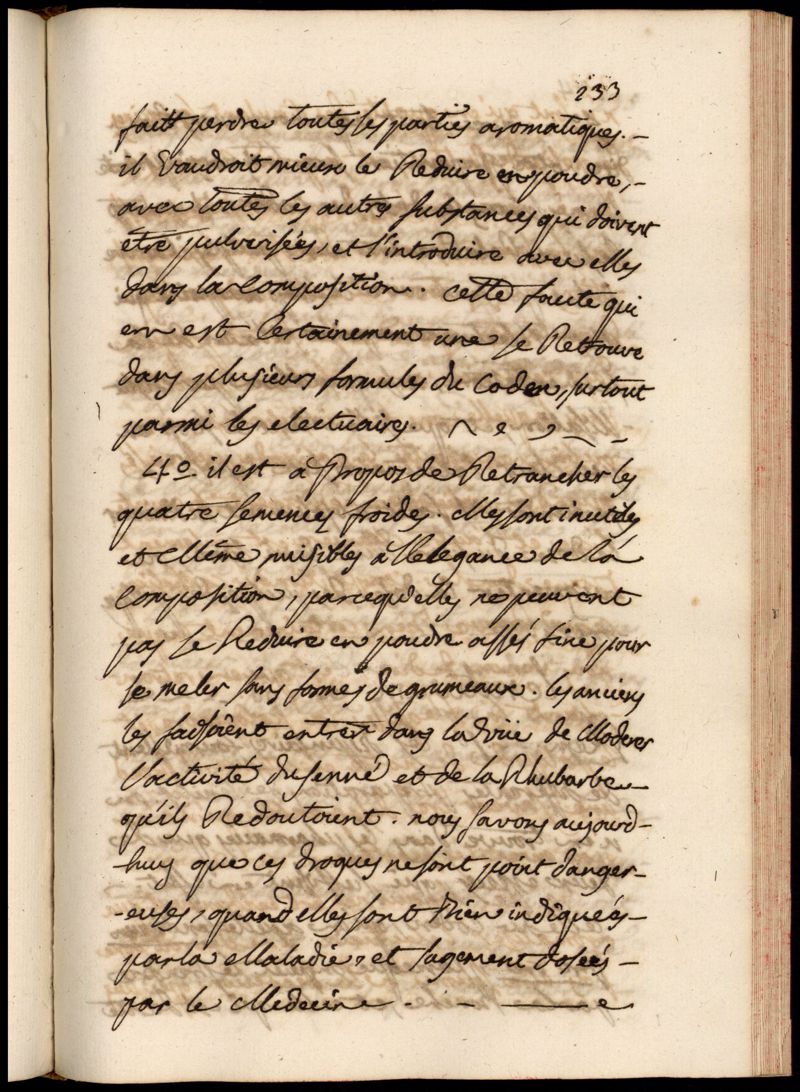 233
fait perdre toutes les parties aromatiques. -
il Vaudroit mieux le Reduire en poudre, -
avec toutes les autres substances qui doivent
etre pulverisées, et l'introduire avec elles
dans la Composition. cette faute qui
en est Certainement une se Retrouve
dans plusieurs formules du Codex, surtout
parmi les electuaires.
4º. il est à Propos de Retrancher les
quatre semences froides. elles sont inutiles
et Même nuisibles à l'elegance de la
Composition, parcequ'elles ne peuvent
pas se Reduire en poudre assés fine pour
se meler sans former de grumeaux. les anciens
les faisoient entrer dans la vüe de Moderer
l'activité du senné et de la Rhubarbe
qu'ils Redoutoient. nous savons aujourd-
-huy que ces drogues ne sont point danger-
-euses, quand elles sont Bien indiqueés -
par la Maladie, et sagement doseés -
par le Medecin.